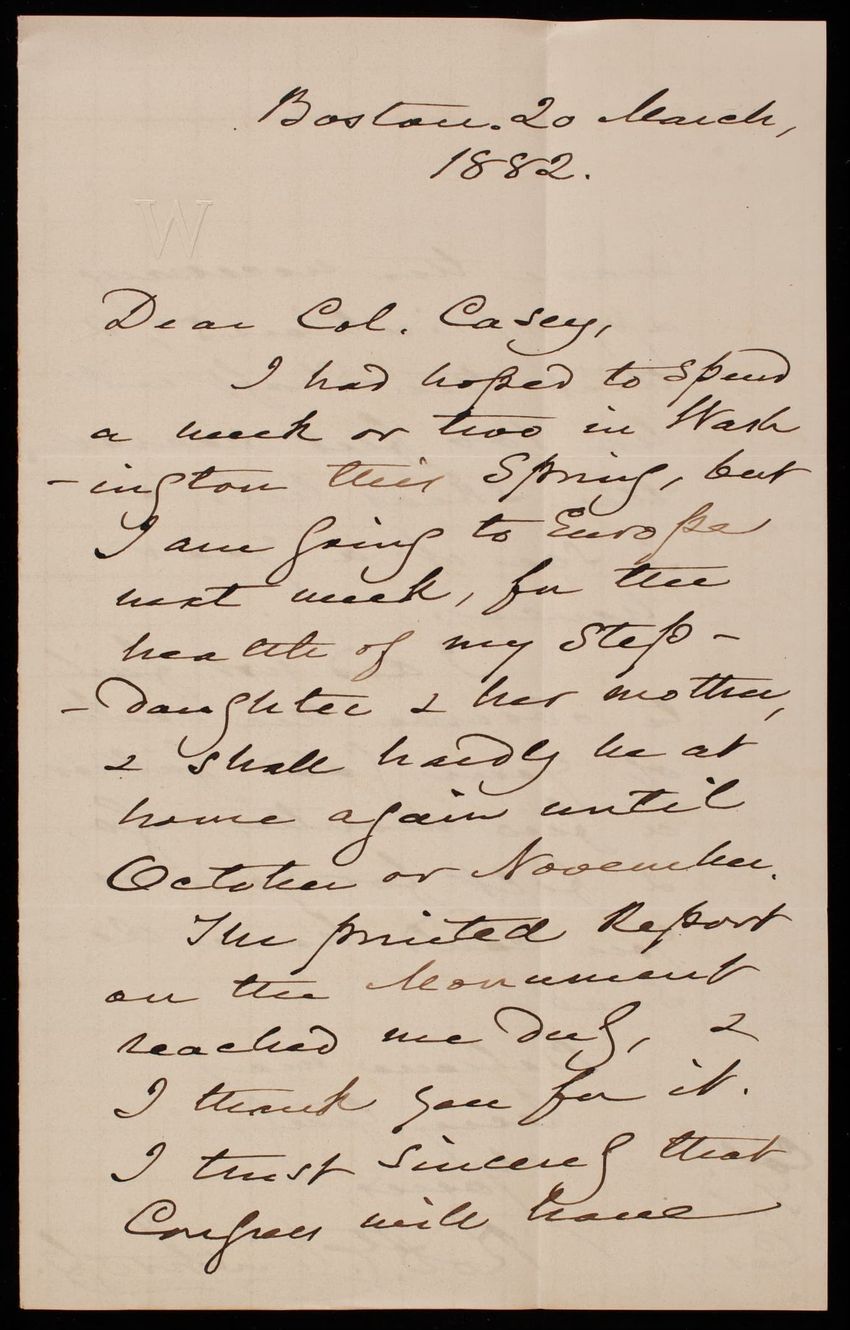 Boston. 20 March,
1882.
W
Dear Col. Casey,
I had hoped to spend
a week or two in Wash
-ington this Spring, but
I am going to Europe
next week, for the
health of my Step-
-daughter & her mother,
& shall hardly be at
home again until
October or November.
The printed Report
on the Monument
reached me duly, &
I thank you for it.
I trust sincerely that
Congress will have